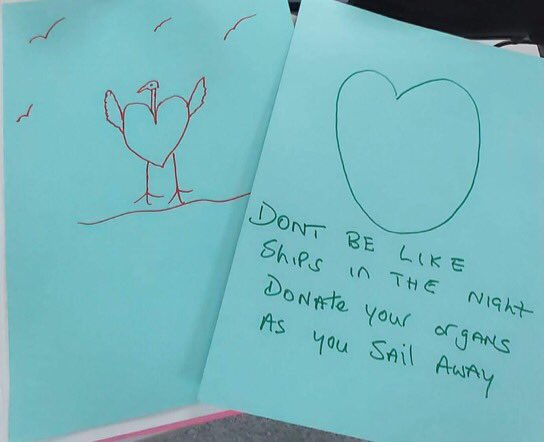 DONT BE LIKE
Ships in THE Night
DONAte your orgANS
As you SAil AWAY